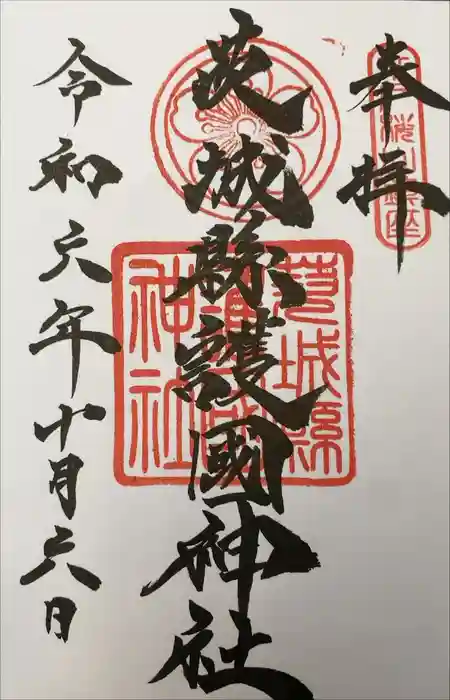 奉拝
茨城縣護國神社
茨城縣
護國
神社
令和六年十月六日